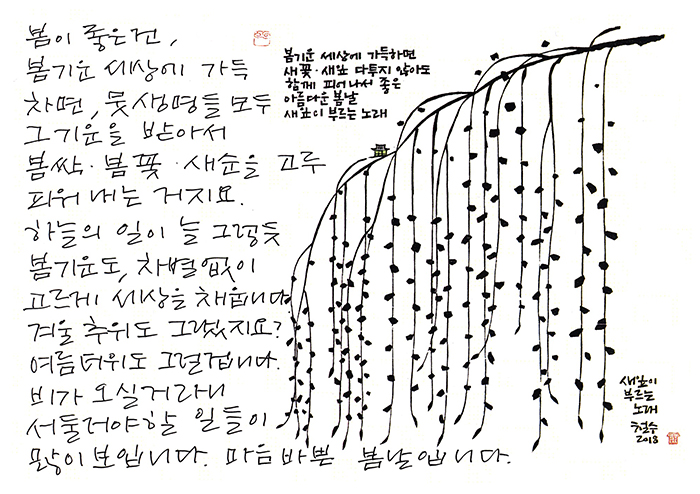 봄이 좋은건,
봄기운 세상에 가득
차면, 뭇생명들 모두
그기운을 받아서
봄싹·봄꽃·새순을 고루
피워내는 거지요.
하늘의 일이 늘 그렇듯
봄기운도, 차별없이
고르게 세상을 채웁니다
겨울 추위도 그랬지요?
여름더위도 그럴겁니다.
비가 오실거라니
서둘러야할 일들이
많이보입니다. 마음바쁜 봄날입니다.
봄기운 세상에 가득하면
새꽃·새잎 다투지 않아도
함께 피어나서 좋은
아름다운 봄날
새잎이 부르는 노래
새잎이
부르는
노래
철수
2018